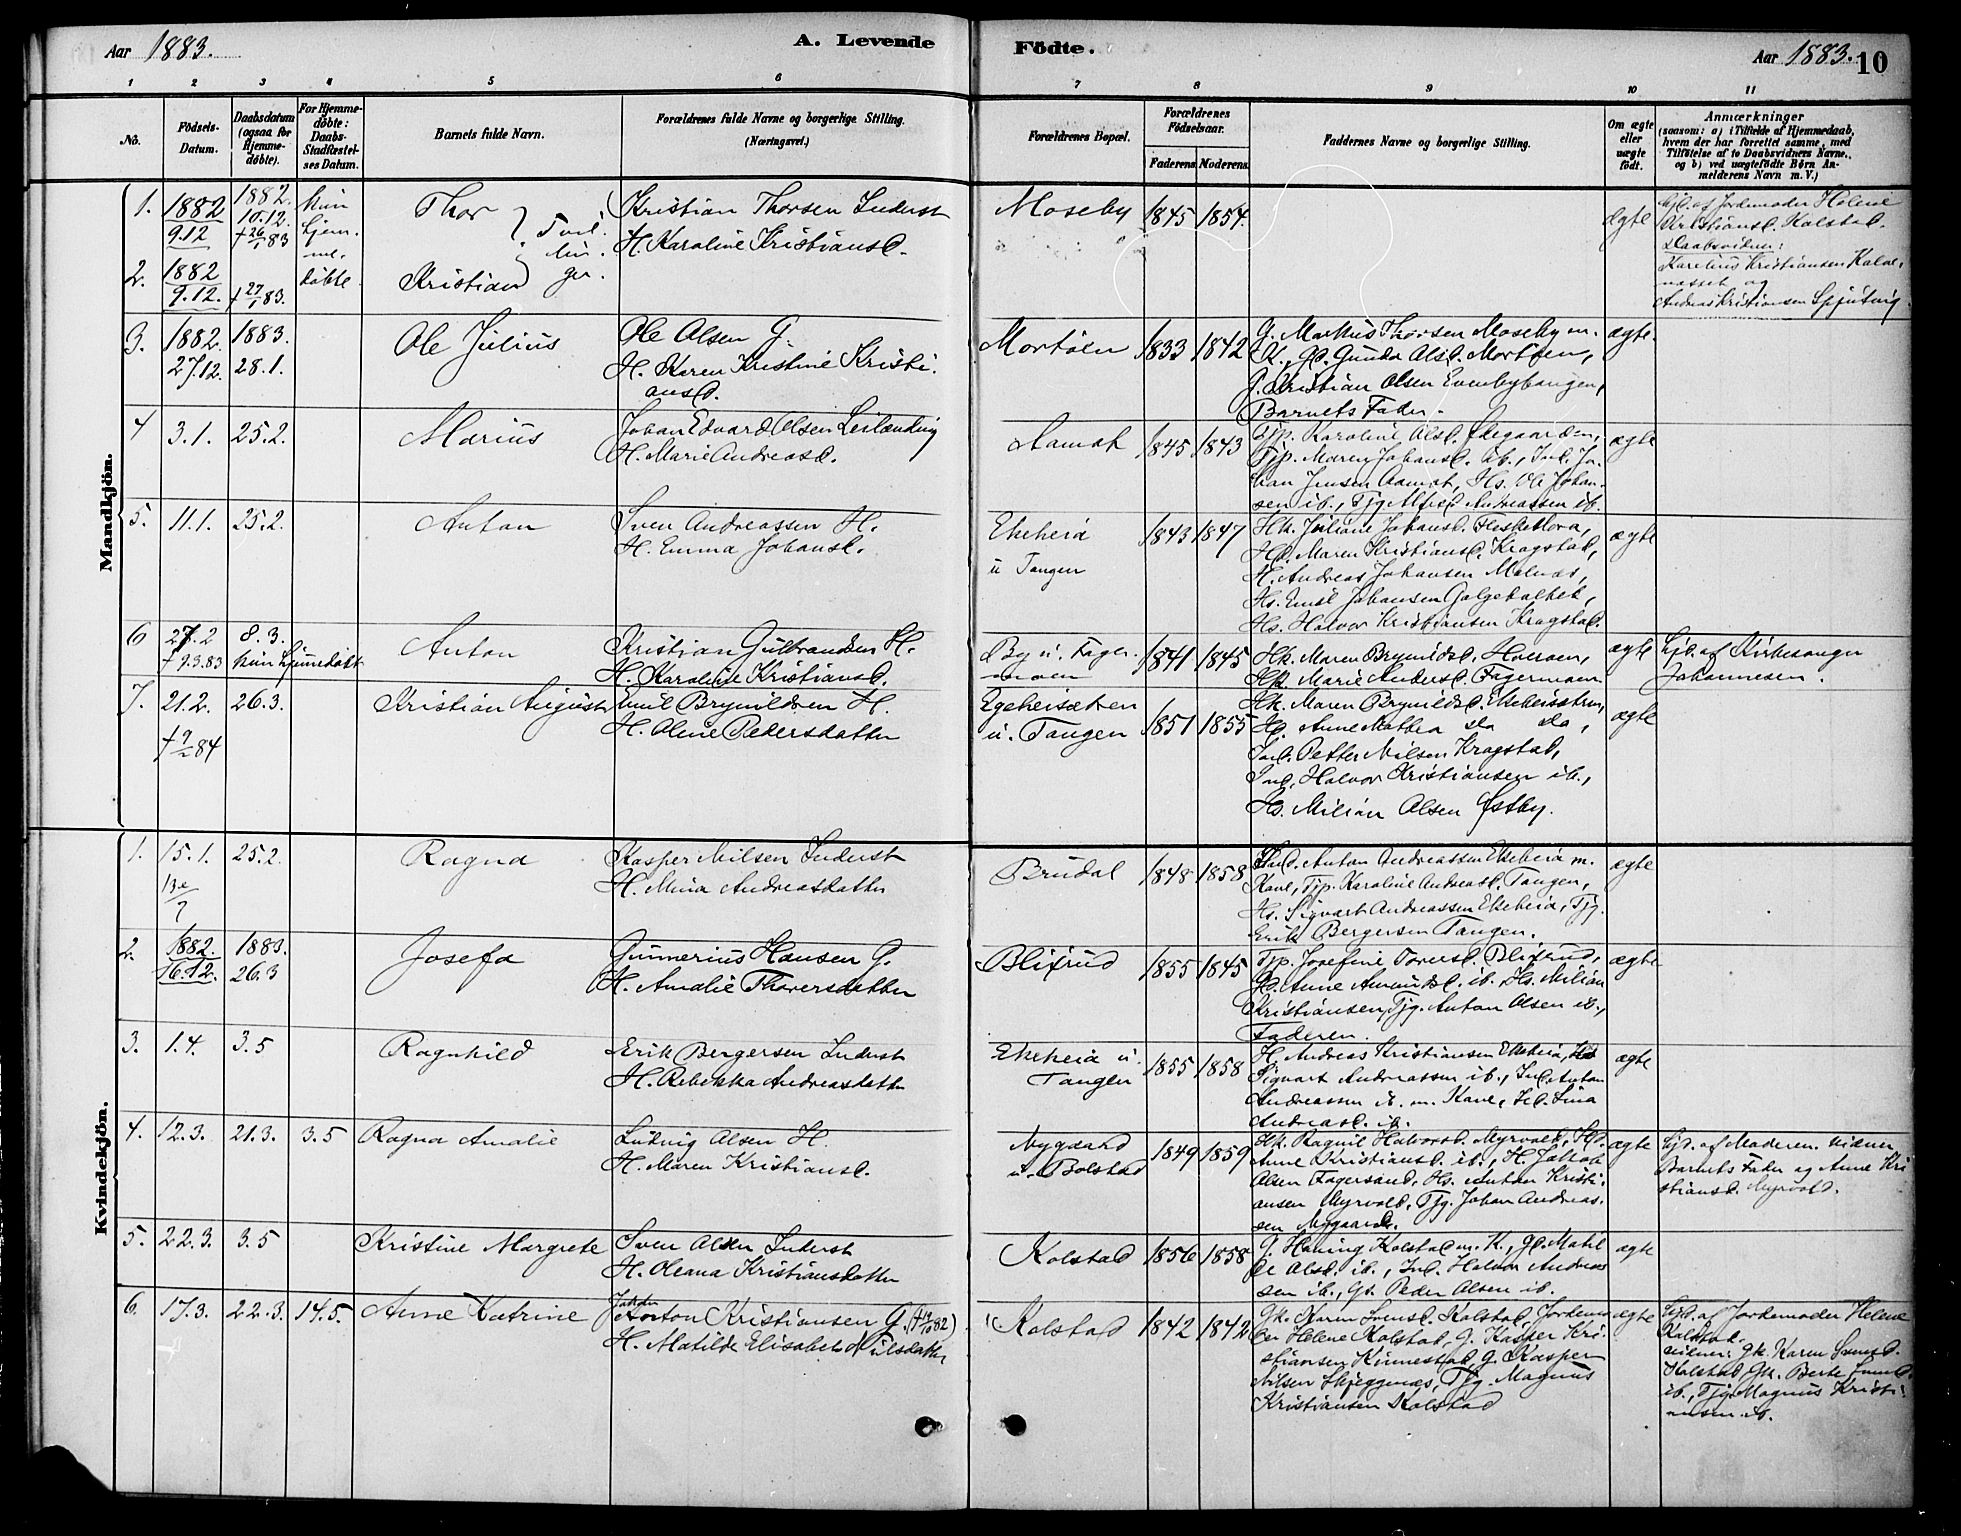 Aar 1883.
A. Levende
Födte.
Aar 1883. 10
1 2 3 4 5 6 7 8 9 10 11
No.
Födsels-
Datum.
Daabsdatum
(ogsaa for
Hjemme-
döbte).
For Hjemme-
döbte:
Daabs-
Stadfæstel-
ses Datum.
Barnets fulde Navn.
Forældrenes fulde Navne og borgerlige Stilling.
(Næringsvei.)
Forældrenes Bopæl.
Forældrenes
Fødselsaar.
Faderens. Moderens.
Faddernes Navne og borgerlige Stilling.
Om ægte
eller
uægte
födt.
Anmærkninger
(saasom: a) i Tilfælde af Hjemmedaab,
hvem der har forrettet samme, med
Tilföielse af to Daabsvidners Navne,
og b) ved uægtefödte Börn An-
melderens Navn m. V.)
Mandkjön.
1. 1882 9.12
1882. 10.12. † 26/1 83
kun
hjem-
me-
döbte
Thor
Tvil-
lin-
ger.
Kristian Thorsen Inderst
H. Karoline Kristiansd.
Moseby 1845 1854. ægte
Hjd. af Jordemoder Helene
Kristiansd. Kolstad.
Daabsvidner:
Karelius Kristiansen Kalve-
næsset og
Andreas Kristiansen Spjutvig.
2. 1882 9.12. † 27/1 83.
Kristian
3. 1882. 27.12. 1883. 28.1.
Ole Julius
Ole Olsen G.
H. Karen Kristine Kristi-
ansd.
Mortöen 1833 1842
G. Markus Thorsen Moseby m.
K., Gd. Gunda Olsd. Mortöen,
G. Kristian Olsen Evenbybangen,
Barnets Fader.
ægte.
4 3.1. 25.2.
Marius
Johan Edvard Olsen Leilænding
H. Marie Andreasd.
Aamot 1845 1843
Tjp. Karoline Olsd. Ødegaarden,
Tjp. Maren Johansd. ib., Ind. Jo-
han Jensen Aamot, Hs. Ole Johan-
sen ib., Tjg Alfred Andreassen ib.
ægte
5. 11.1. 25.2.
Anton
Sven Andreassen H.
H. Emma Johansd.
Ekeheia
u Tangen
1843 1847
Hk. Juliane Johansd. Fleskeklora,
Hd. Maren Kristiansd. Kragstad,
H. Andreas Johansen Malnæs,
Hs. Emil Johansen Galgeholbek,
Hs. Halvor Kristiansen Kragstad.
ægte
6 27.2 † 9.3.83 8.3. kun hjemmedöbt
Anton
Kristian Gulbrandsen H.
H. Karoline Kristiansd.
By u. Fager-
moen
1841 1845
Hk. Maren Brynildsd. Hveroen,
Hk. Marie Andersd. Fagermoen.
ægte
Hjd. af Kirkesanger
Johannesen.
7. 21.2. † 9/2 84 26.3.
Kristian August
Emil Brynildsen H.
H. Oline Pedersdatter
Egeheisætren
u. Tangen
1851 1855
Hk. Maren Brynildsd. Ekeheisætren,
Hd. Anne Mathea do do,
Ind. Petter Nilsen Kragstad,
Ind. Halvor Kristiansen ib.,
Hs. Milian Olsen Østby.
ægte
Kvindekjön.
1. 15.1. 25.2.
Ragna
Kasper Nilsen Inderst
H. Mina Andreasdatter
Brudal 1848 1858
Ind. Anton Andreassen Ekeheia m.
Kone, Tjp. Karoline Andreasd. Tangen,
Hs. Sigvart Andreassen Ekeheia, Tjg.
Erik Bergersen Tangen.
ægte
2. 1882. 16.12. 1883. 26.3
Josefa
Gunnerius Hansen G.
H. Amalie Thoversdatter
Blixrud 1855 1845
Tjp. Josefine Toversd. Blixrud,
Gd. Anne Amundsd. ib., Hs. Milian
Kristiansen, Tjg. Anton Olsen ib.,
Faderen.
ægte
3. 1.4. 3.5
Ragnhild
Erik Bergersen Inderst
H. Rebekka Andreasdatter
Ekeheia u.
Tangen
1855 1858
H. Andreas Kristiansen Ekeheia, Hs
Sigvart Andreassen ib., Ind. Anton
Andreassen ib. m. Kone, Hd. Lina
Andreasd. ib.
ægte
4. 12.3. 21.3. 3.5
Ragna Amalie
Ludvig Olsen H.
H. Maren Kristiansd.
Nygaard
u. Bolstad
1849 1859
Hk. Ragnil Halvorsd. Myrvold, Hd.
Anne Kristiansd. ib., H. Jakob
Olsen Fagersand, Hs. Anton Kristi-
ansen Myrvold, Tjg. Johan Andreas-
sen Nygaard.
ægte
Hjd. af Moderen. Vidner
Barnets Fader og Anne Kri-
stiansd. Myrvold.
5. 22.3. 3.5
Kristine Margrete
Sven Olsen Inderst
H. Oleana Kristiansdatter
Kolstad 1856 1858
G. Haning Kolstad m. K., Gd. Matil-
de Olsd. ib., Ind. Halvor Andreas-
sen ib., Gs. Peder Olsen ib.
ægte
6. 17.3. 22.3. 14.5.
Anne Katrine
Morton Kristiansen G.
H. Matilde Elisabeth Nilsdatter
Kolstad 1842 1842
Gk. Karen Svensd. Kolstad, Jordemo-
der Helene Kolstad, G. Kasper Kri-
stiansen Kinnestad, G. Kasper
Nilsen Skjeggenæs, Tjg. Magnus
Kristiansen Kolstad
ægte
Hjd. af Jordemoder Helene
Kolstad.
Vidner: Gk. Karen Svensd.
Kolstad Gk. Berte Svensd.
ib., Tjg. Magnus Kristi-
ansen ib.